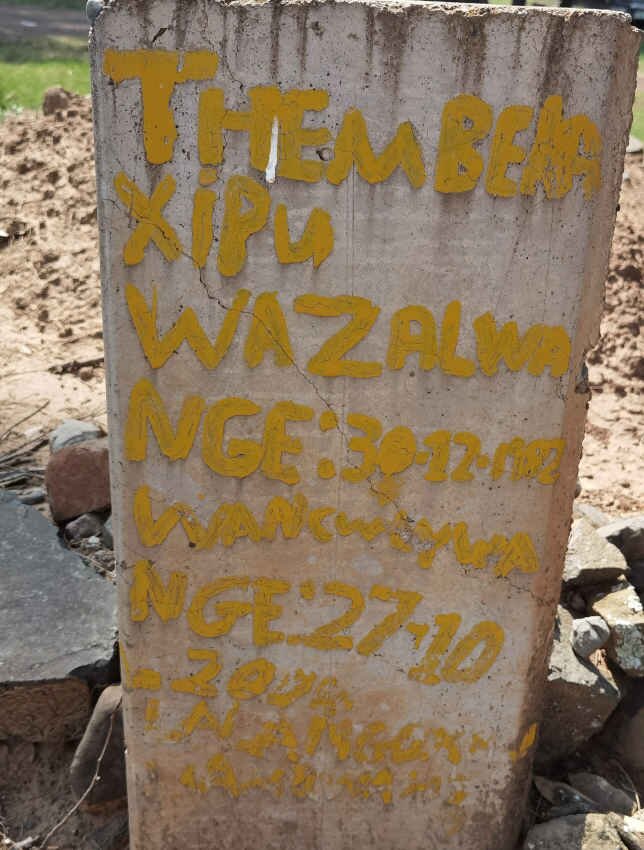 THEMBEKA
XiPu
WAZALWA
NGE:30-12-1982
WANCWiYWA
NGE:27-10
2004